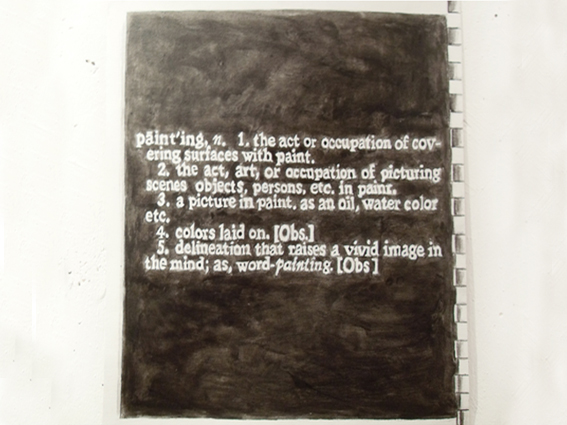 pāint'ing, n. 1. the act or occupation of cov-
ering surfaces with paint.
2. the act, art, or occupation of picturing
scenes objects, persons, etc. in paint.
3. a picture in paint, as an oil, water color
etc.
4. colors laid on. [Obs.]
5. delineation that raises a vivid image in
the mind; as, word-painting. [Obs]